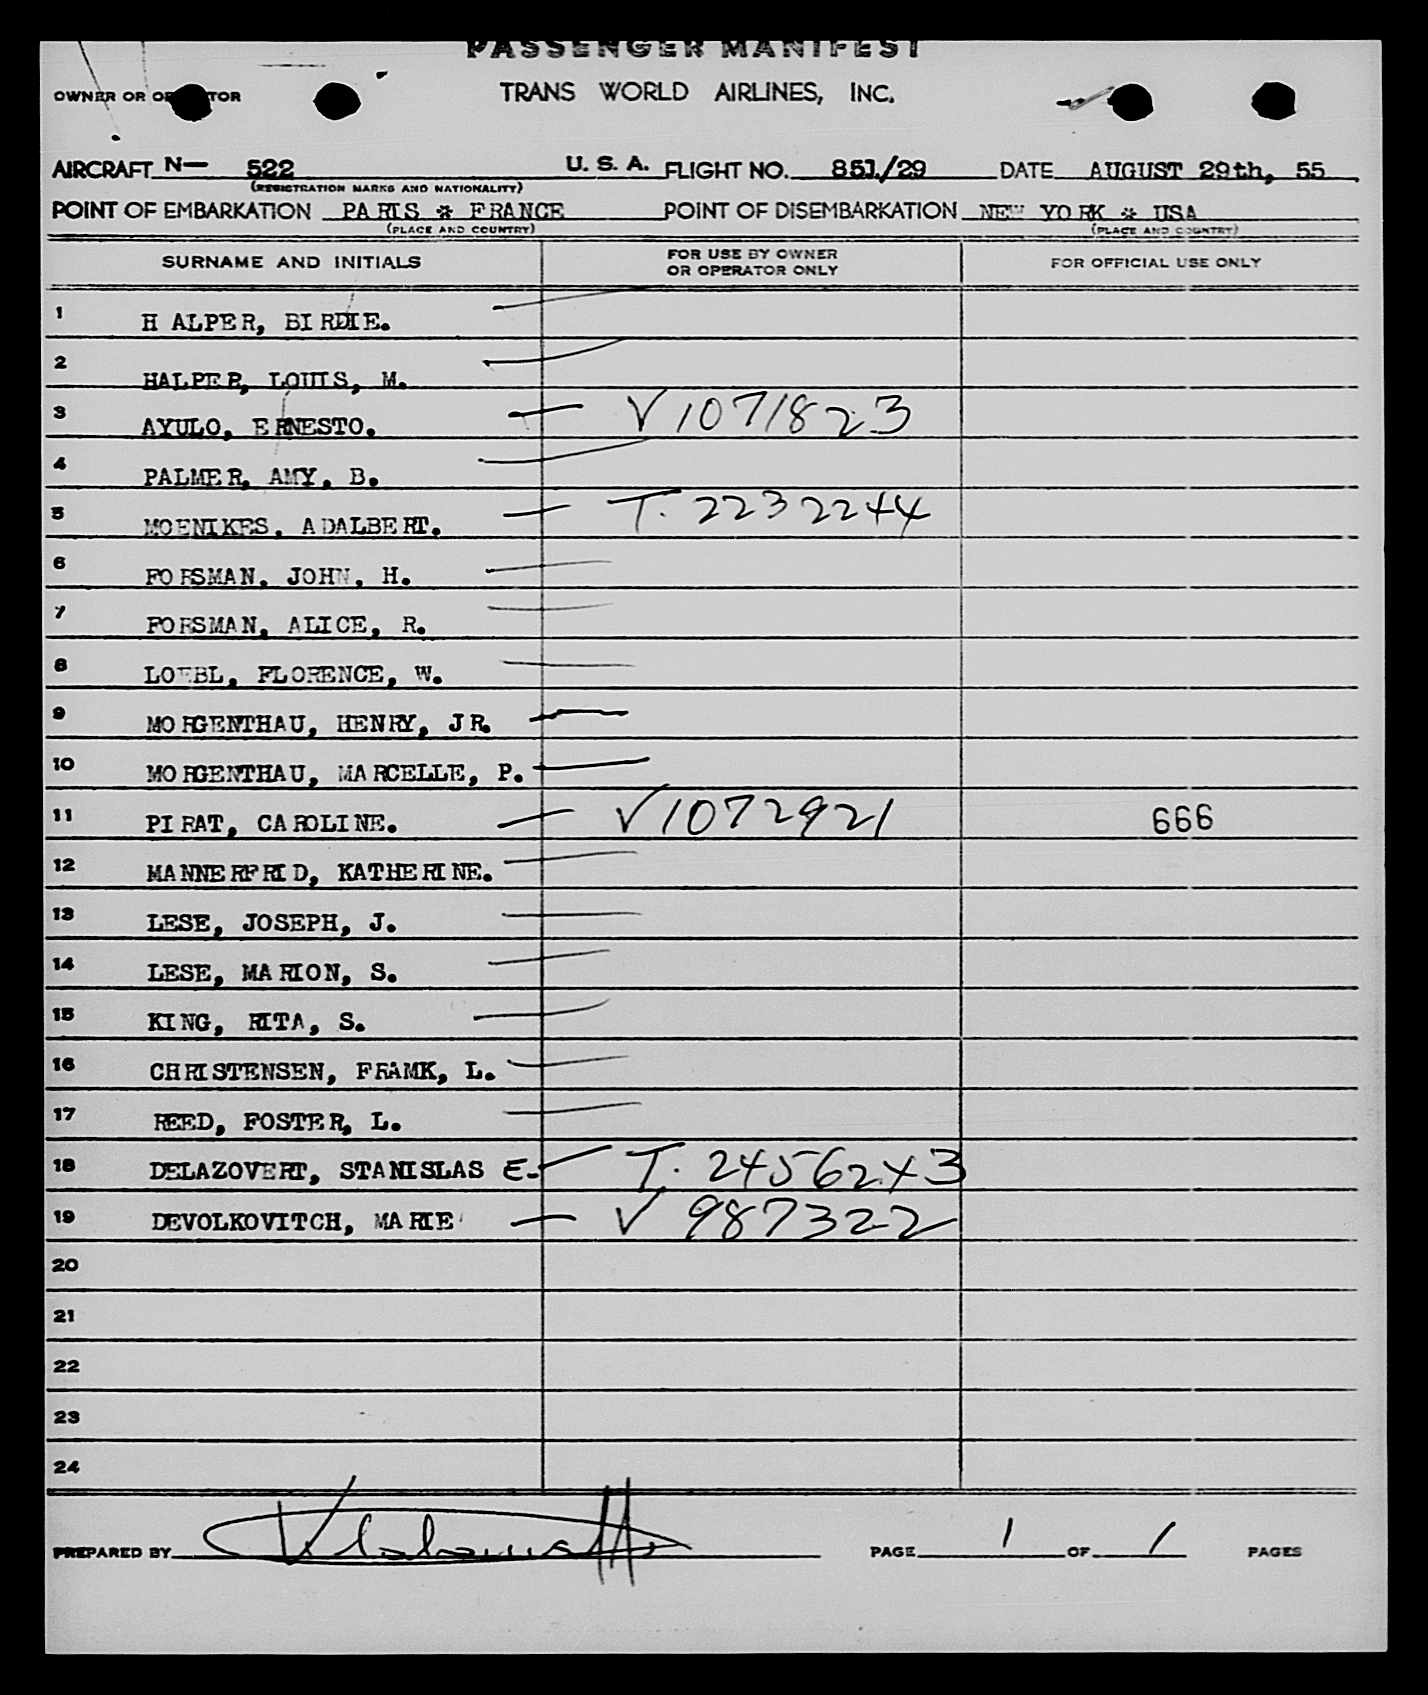 PASSENGER MANIFEST
TRANS WORLD AIRLINES, INC.
OWNER OR OPERATOR
AIRCRAFT N— 522 U. S. A. FLIGHT NO. 851/29 DATE AUGUST 29th, 55
(REGISTRATION MARKS AND NATIONALITY)
POINT OF EMBARKATION PARIS * FRANCE POINT OF DISEMBARKATION NEW YORK * USA
(PLACE AND COUNTRY) (PLACE AND COUNTRY)
SURNAME AND INITIALS FOR USE BY OWNER OR OPERATOR ONLY FOR OFFICIAL USE ONLY
1 HALPER, BIRDIE.
2 HALPER, LOUIS, M.
3 AYULO, ERNESTO. V1071823
4 PALMER, AMY, B.
5 MOENIKES. ADALBERT. T. 2232244
6 FORSMAN. JOHN. H.
7 FORSMAN, ALICE, R.
8 LOEBL, FLORENCE, W.
9 MORGENTHAU, HENRY, JR.
10 MORGENTHAU, MARCELLE, P.
11 PIRAT, CAROLINE. V1072921 666
12 MANNERFRID, KATHERINE.
13 LESE, JOSEPH, J.
14 LESE, MARION, S.
15 KING, RITA, S.
16 CHRISTENSEN, FRAMK, L.
17 REED, FOSTER, L.
18 DELAZOVERT, STANISLAS E. T. 2456243
19 DEVOLKOVITCH, MARIE V 987322
20
21
22
23
24
PREPARED BY PAGE 1 OF 1 PAGES